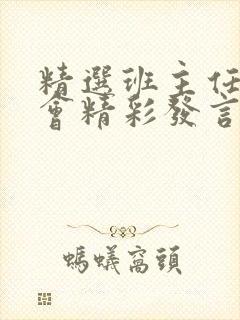 精選班主任
會精彩發言
螞蟻窩頭